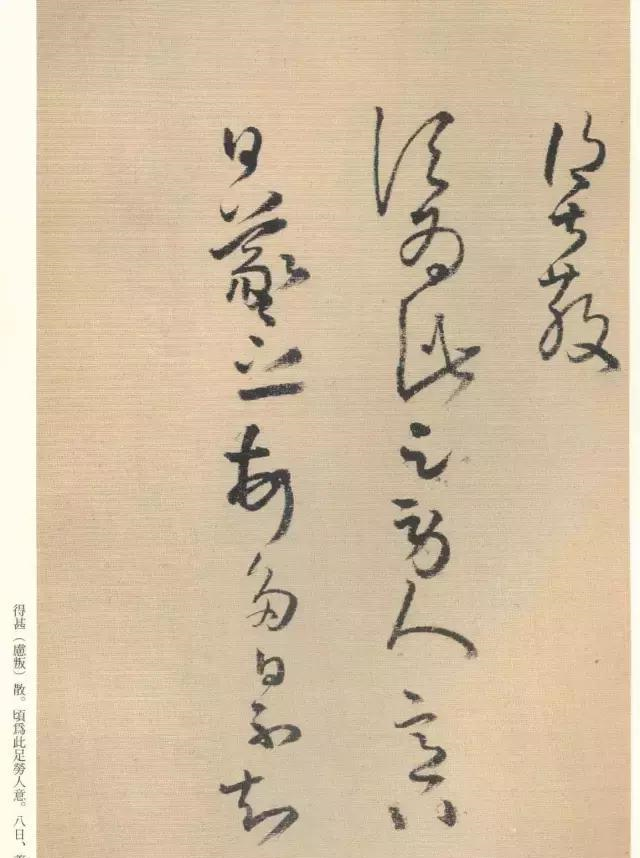 得甚散
頃爲此足勞人意八
日羲之多日不知
得甚（慮叛）散。頃爲此足勞人意。八日、